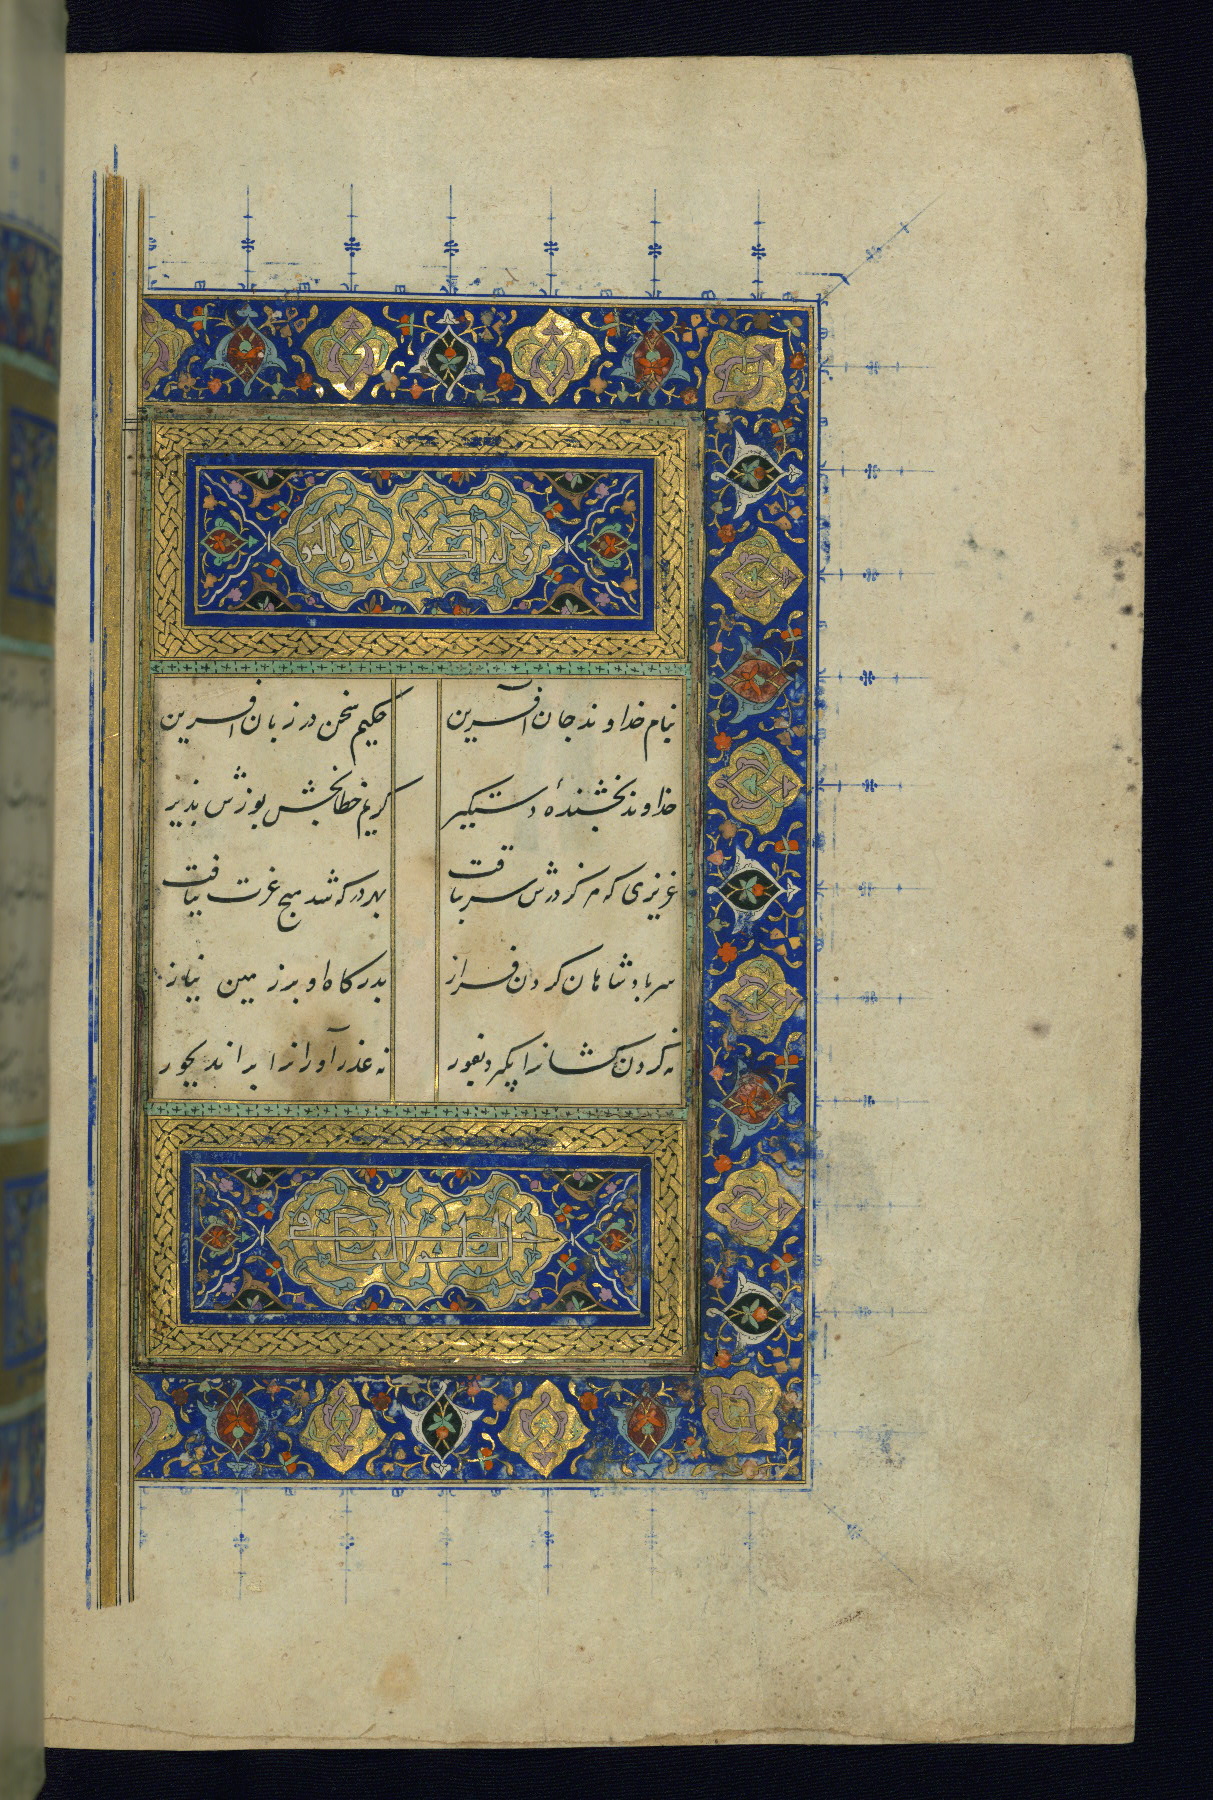 بنام خداوند جان آفرین حکیم سخن در زبان آفرین
خداوند بخشندهٔ دستکیر کریم خطابخش پوزش پذیر
عزیزی که هر کز درش سر بتافت بهر در که شد هیچ عزت نیافت
سر بادشاهان کردن فراز بدرکاه او بر زمین نیاز
نه کردن کشانرا بکیرد بفور نه عذرآورانرا براند بجور